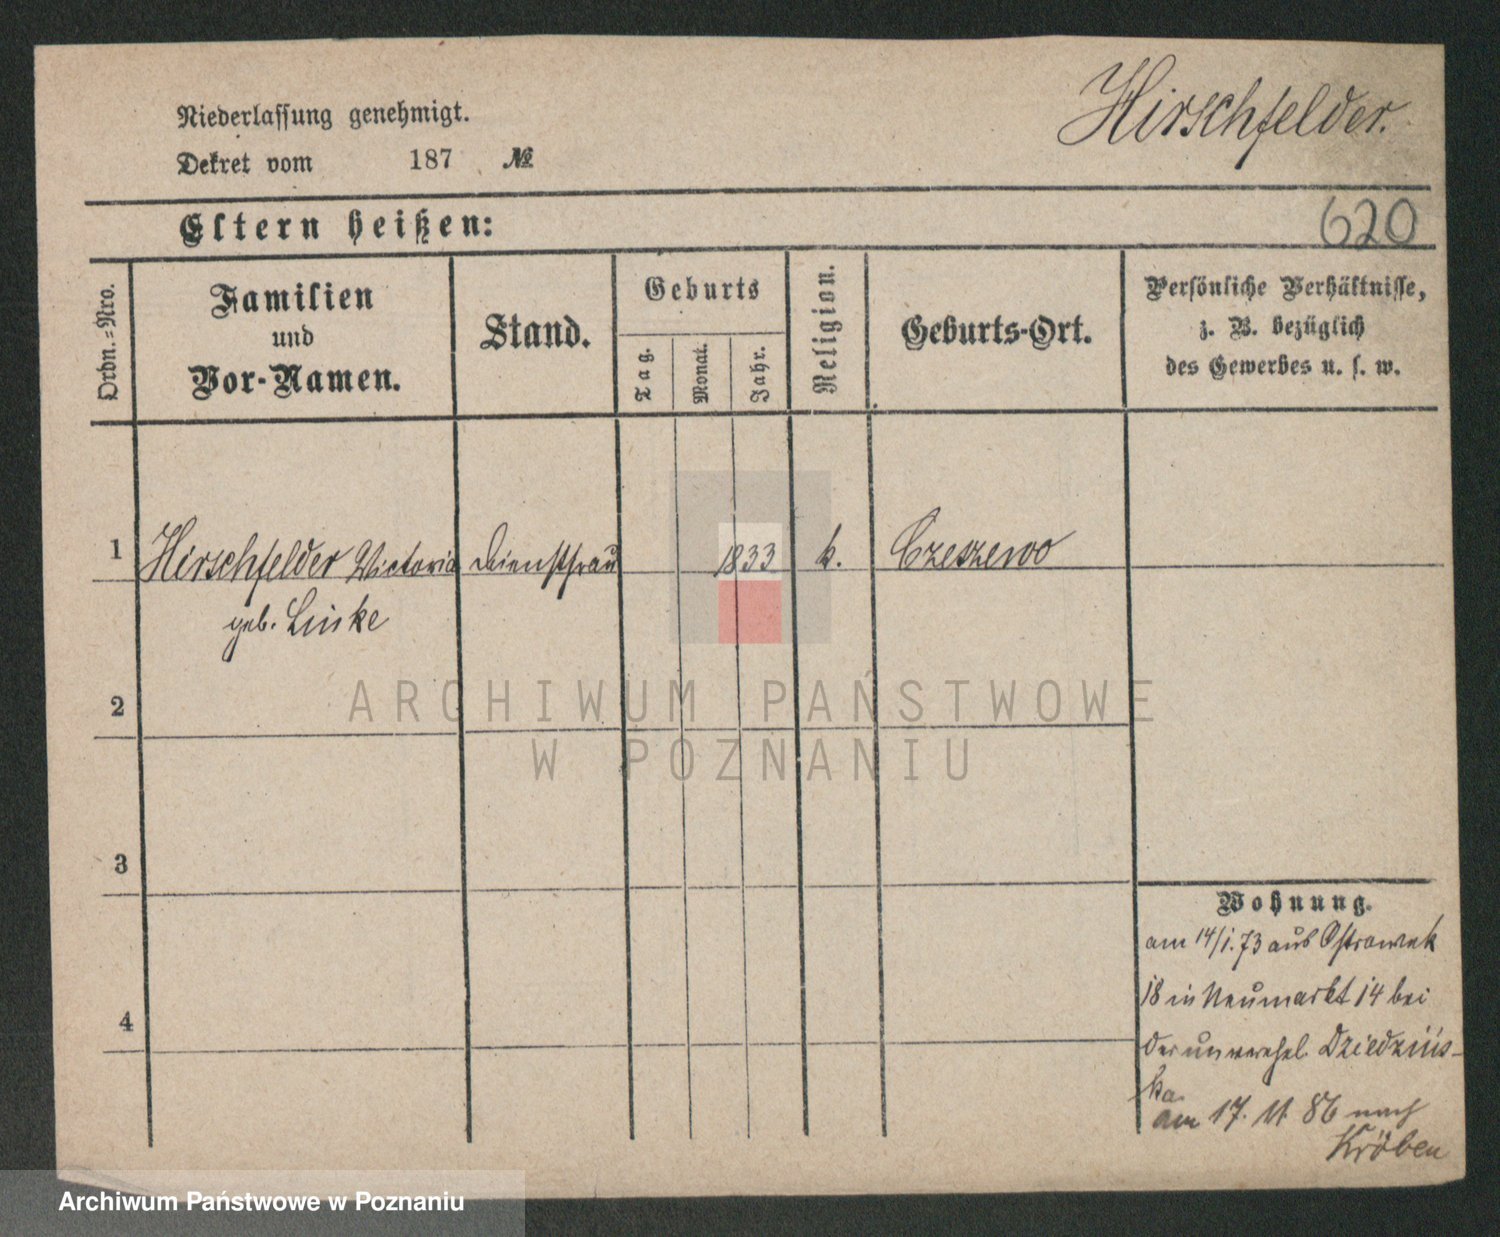 Hirschfelder.
Niederlassung genehmigt.
Dekret vom 187 №
Eltern heißen:
620
Ordn.-Nro.
Familien
und
Vor-Namen.
Stand.
Geburts
Tag.
Monat.
Jahr.
Religion.
Geburts-Ort.
Persönliche Verhältnisse,
z. B. bezüglich
des Gewerbes u. s. w.
1 Hirschfelder Victoria Dienstfrau 1833 k. Czeszewo
geb. Linke
2
3
4
Wohnung.
am 14/1.73 aus Ostrowek
18 in Neumarkt 14 bei
der unverehel. Dziedzińs-
ka.
am 17. 11 86 nach
Kröben
ARCHIWUM PAŃSTWOWE
W POZNANIU
Archiwum Państwowe w Poznaniu